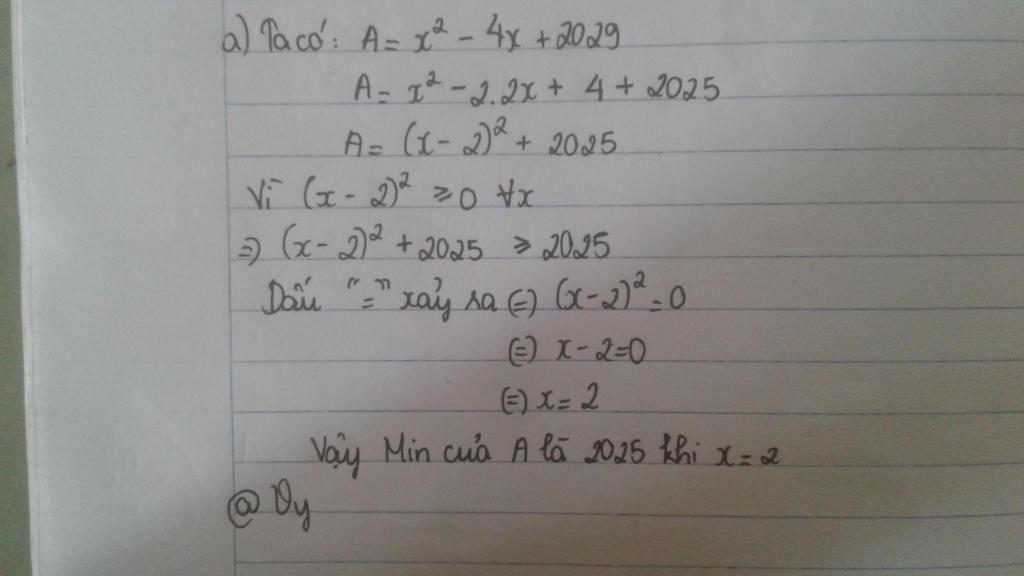 a) Ta có: A = x² - 4x + 2029
A = x² - 2.2x + 4 + 2025
A = (x - 2)² + 2025
Vì (x - 2)² ⩾ 0 ∀x
⇒ (x - 2)² + 2025 ⩾ 2025
Dấu "=" xảy ra (=) (x - 2)² = 0
(=) x - 2 = 0
(=) x = 2
Vậy Min của A là 2025 khi x = 2
@ Vy